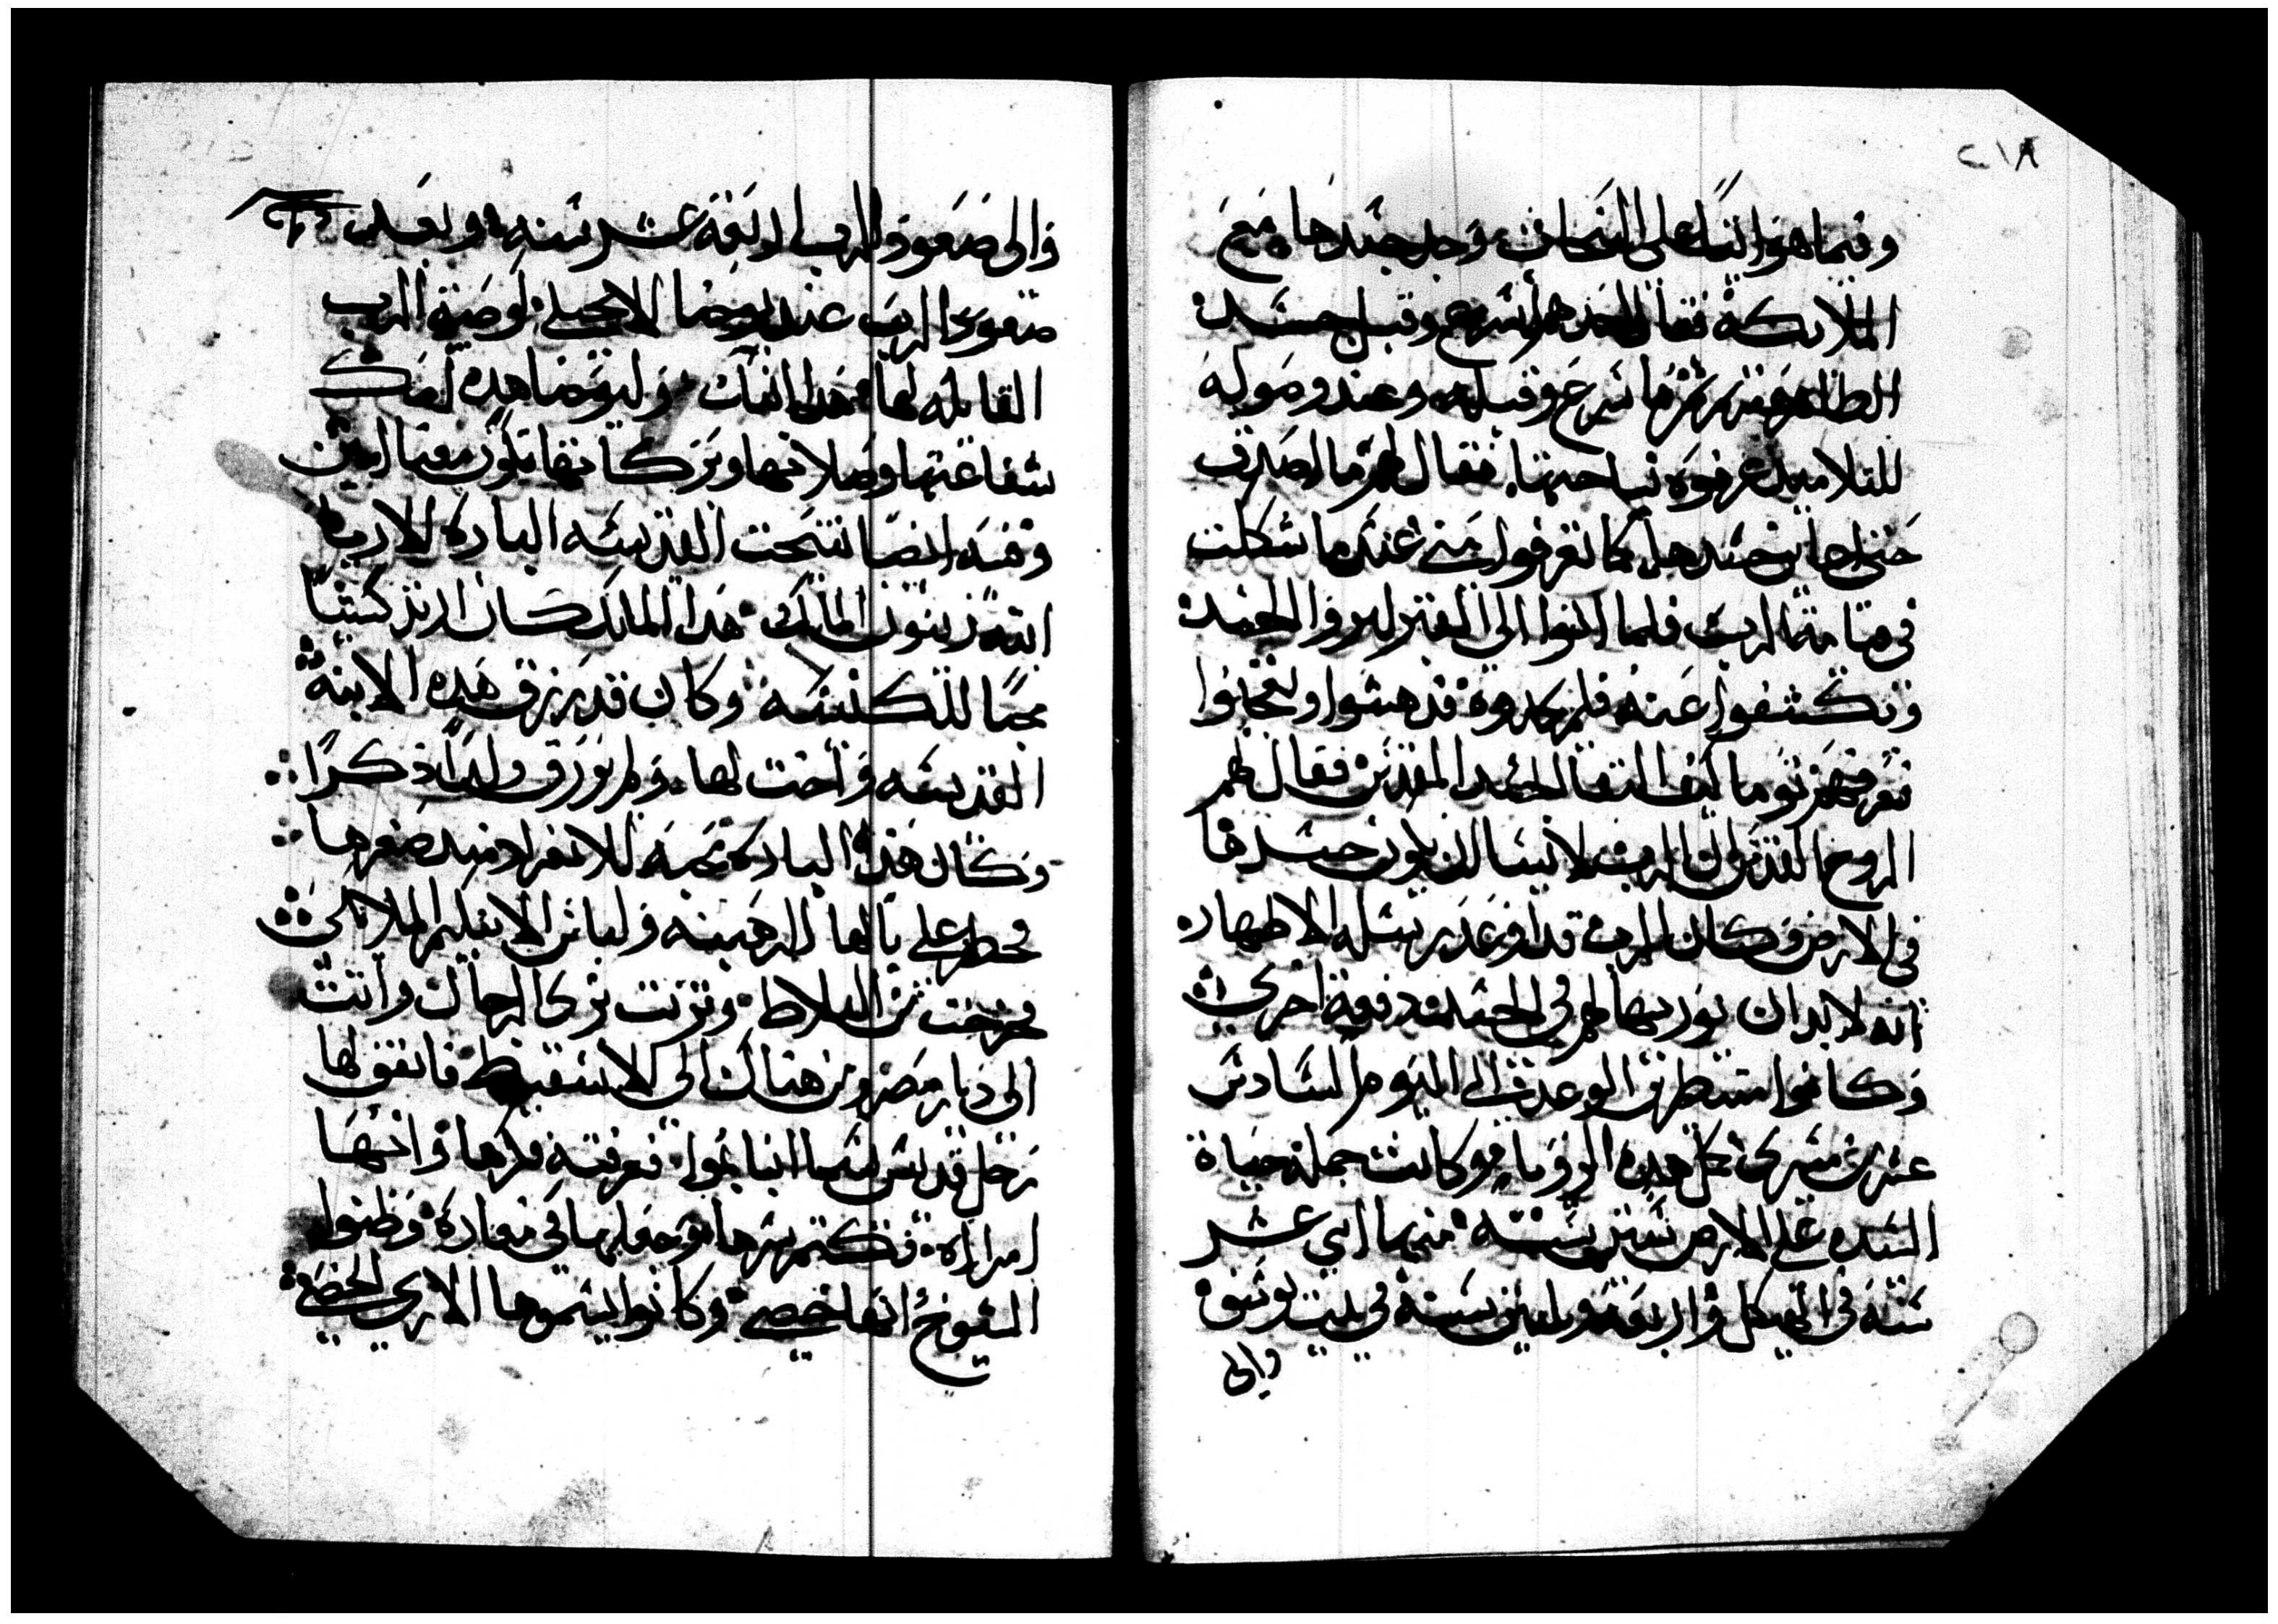 ٢١٨
وفيما هو اتيًا على السحاب وجد جسدها مع
الملايكة فقال احدهم اسرع وقبل جسد
الطاهره مرتمريم فاسرع وقبله وعند وصوله
للتلاميد عرفوه نياحتها فقال لهم ما اصدق
حتى اعاين جسدها كما تعرفوا مني عندما شككت
في قيامة الرب فلما اتوا الى القبر ليروا الجسد
وكشفوا عنه فلم يجدوه فدهشوا وتعجبوا
فعرفهم توما كيف التقا الجسد المقدس فقال لهم
الروح القدس ان الرب لا يشا ان يكون جسدها
في الارض وكان الرب قد اوعد رسله الاطهار
انه لا بد ان يوريها لهم في الجسد دفعة اخرى
وكانوا منتظرين الوعد الى اليوم السادس
عشر من مسرى كل هده الرويا وكانت جملة حياة
السيده على الارض ستين سنه منها اتني عشر
سنه في الهيكل واربعه وتلتين سنة في بيت يوسف
والى
والى صعود الرب اربعة عشر سنه وبعد
صعود الرب عند يوحنا الانجيلي لوصية الرب
القايله لها هدا ابنك وليوحنا هده امك
شفاعتها وصلاتها وبركاتها تكون معنا امين
وفيه ايضا تنيحت القديسه الباره ايلاريا
ابنة زينون الملك هدا الملك كان ارتدكسيًا
محبًا للكنيسه وكان قد رزق هده الابنة
القديسه واخت لها ولم يرزق ولدًا ذكرًا
وكان هده الباره تحبه للانفراد منذ صغرها
فخطر على بالها الرهبنه ولباس الاسكيم الملايكي
فخرجت من البلاط وتزيت بزي الرجال واتت
الى ديار مصر ومن هناك الى الاسقيط فاتفق لها
رجل قديس يسما انبا بموا فعرفته فكرها وانها
امراه فكتم سرها وجعلها في مغارة وظنوا
الشيوخ انها خصي وكانوا يسموها ايلاري الخصي